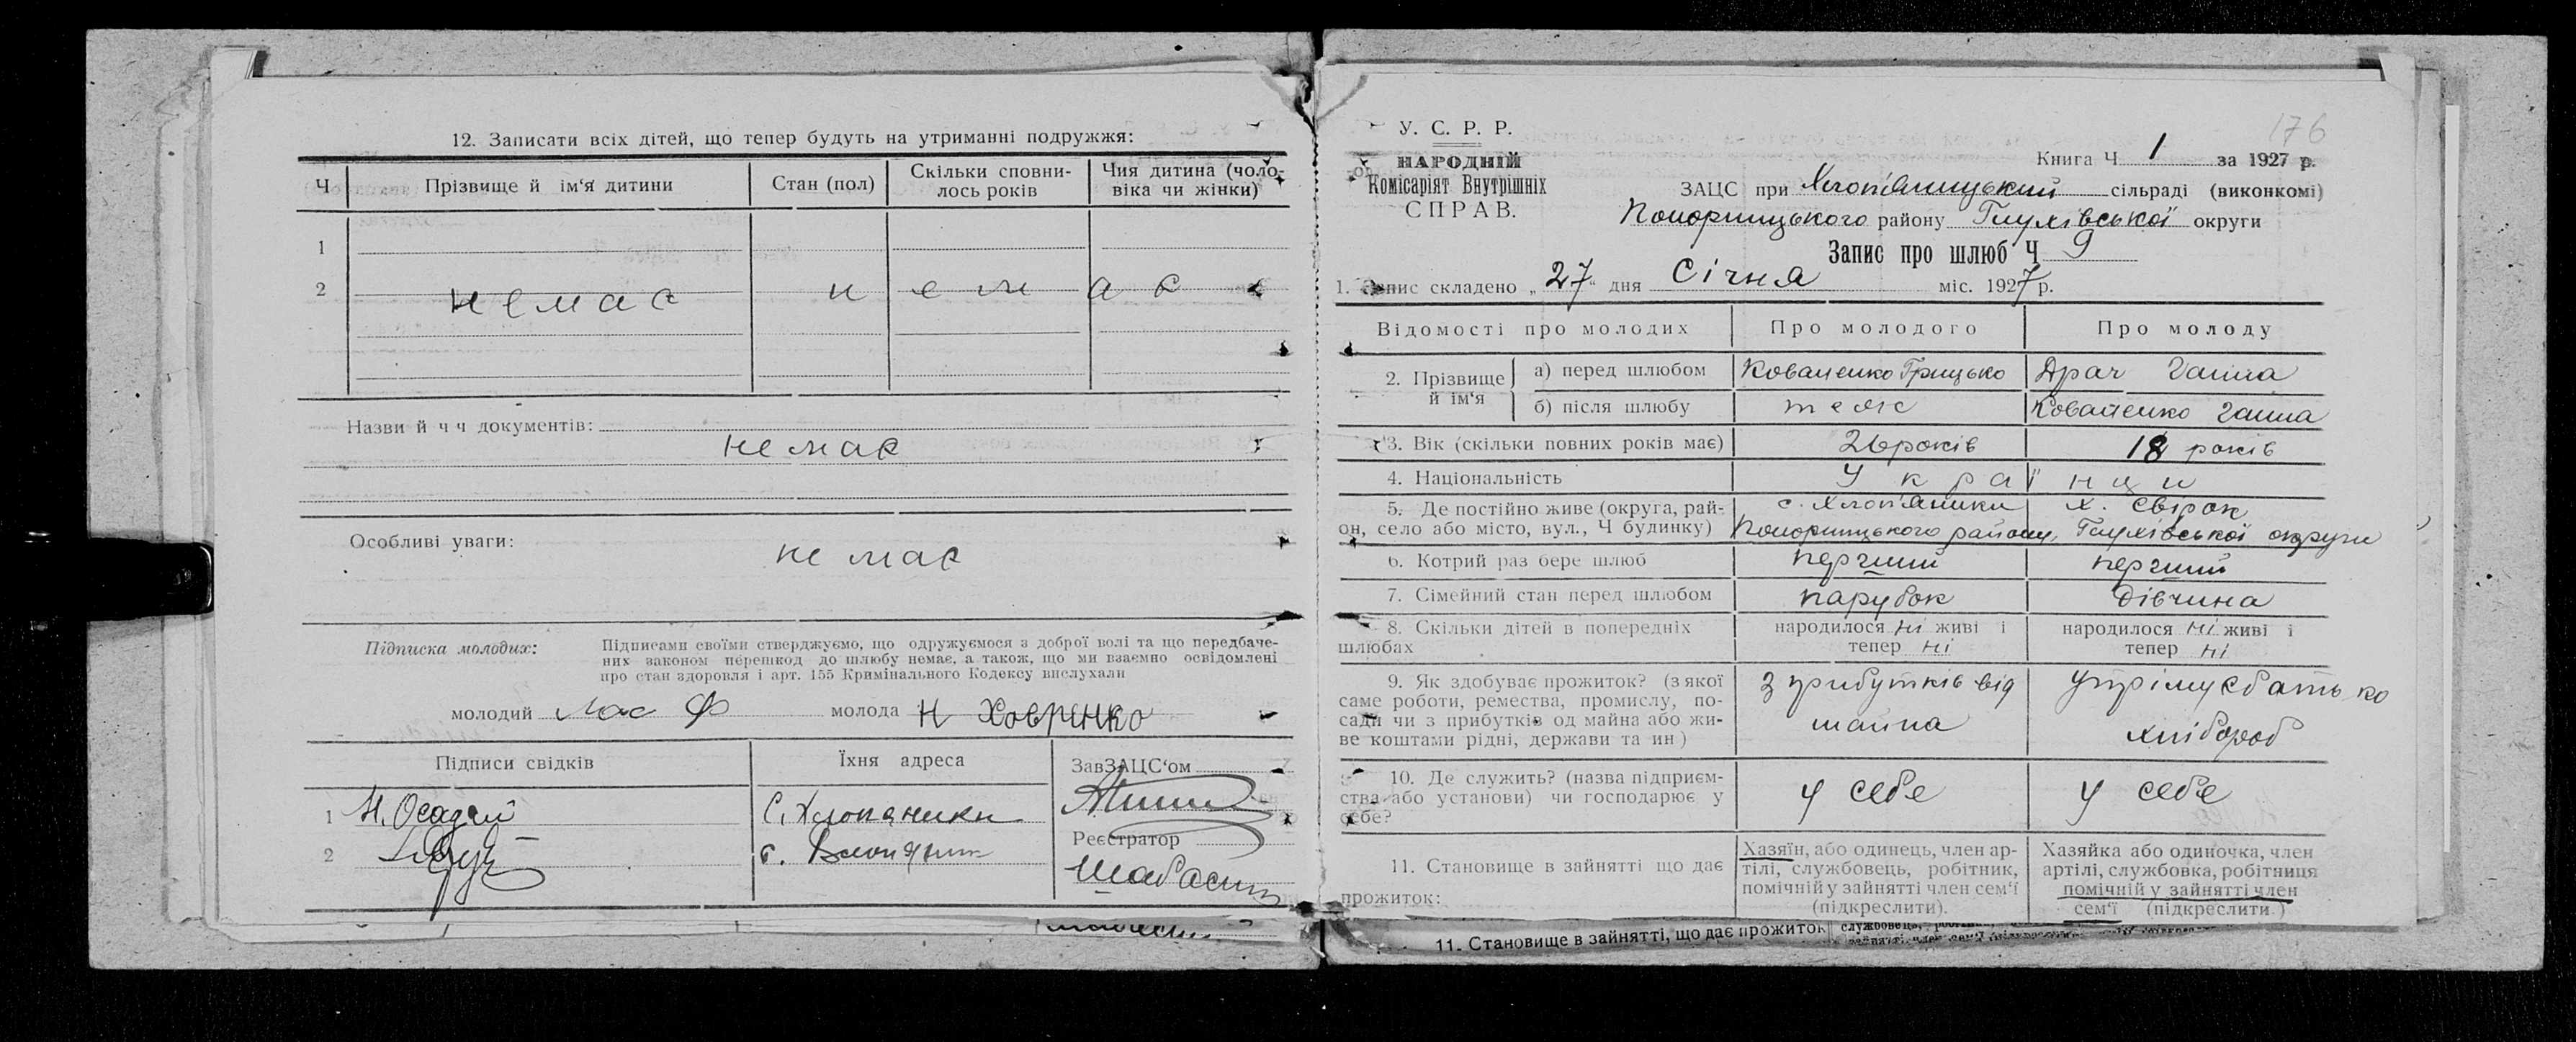 12. Записати всіх дітей, що тепер будуть на утриманні подружжя:
Ч Прізвище й ім‘я дитини Стан (пол) Скільки сповни- Чия дитина (чоло-
лось років віка чи жінки)
1
2 немає н е м а є
Назви й ч ч документів:
немає
Особливі уваги:
немає
Підписка молодих: Підписами своїми стверджуємо, що одружуємося з доброї волі та що передбаче-
них законом перешкод до шлюбу немає, а також, що ми взаємно освідомлені
про стан здоровля і арт. 155 Кримінального Кодексу вислухали
молодий молода Н Ховренко
Підписи свідків Їхня адреса ЗавЗАЦС‘ом
1 Н. Осадчий С. Хлопяники
Реєстратор
2 с.
176
У. С. Р. Р.
НАРОДНІЙ
Комісаріят Внутрішніх
СПРАВ.
Книга Ч 1 за 1927 р.
ЗАЦС при Хлоп'яницький сільраді (виконкомі)
Понорницького району Глухівської округи
Запис про шлюб Ч 9
1. Запис складено „27“ дня Січня міс. 1927 р.
Відомості про молодих Про молодого Про молоду
2. Прізвище й ім‘я а) перед шлюбом Коваленко Грицько Драч Ганна
б) після шлюбу теж Коваленко Ганна
3. Вік (скільки повних років має) 26 років 18 років
4. Національність У к р а ї н ц и
5. Де постійно живе (округа, рай- с. Хлоп'яники х. Свірок
он, село або місто, вул., Ч будинку) Понорницького району, Глухівської округи
6. Котрий раз бере шлюб перший перший
7. Сімейний стан перед шлюбом парубок дівчина
8. Скільки дітей в попередніх народилося ні живі і народилося ні живі і
шлюбах тепер ні тепер ні
9. Як здобуває прожиток? (з якої з прибутків від утрімує батько
саме роботи, ремества, промислу, по-
сади чи з прибутків од майна або жи- майна хлібороб
ве коштами рідні, держави та ин)
10. Де служить? (назва підприєм-
ства або установи) чи господарює у у себе у себе
себе?
11. Становище в зайнятті що дає Хазяїн, або одинець, член ар- Хазяйка або одиночка, член
прожиток: тілі, службовець, робітник, артілі, службовка, робітниця
помічній у зайнятті член сем‘ї помічній у зайнятті член
(підкреслити). сем‘ї (підкреслити.)
11. Становище в зайнятті, що дає прожиток